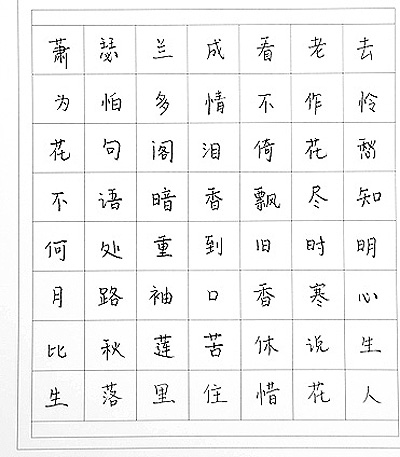 萧瑟兰成看老去
为怕多情不作怜
花句阁泪倚花愁
不语暗香飘尽知
何处重到旧时明
月路袖口香寒心
比秋莲苦休说生
生落里住惜花人